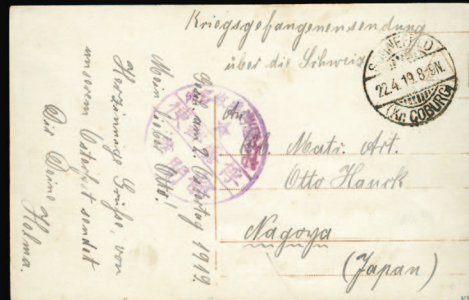 Kriegsgefangenensendung
über die Schweiz
22.4.19. 8-9N.
(Kr. COBURG)
An
Ob. Matr. Art.
Otto Hauck
Nagoya
(Japan)
am 2. Ostertag 1919.
Mein lieber Otto!
Herzinnige Grüße, von
unserem sendet
Dir Deine Helma.